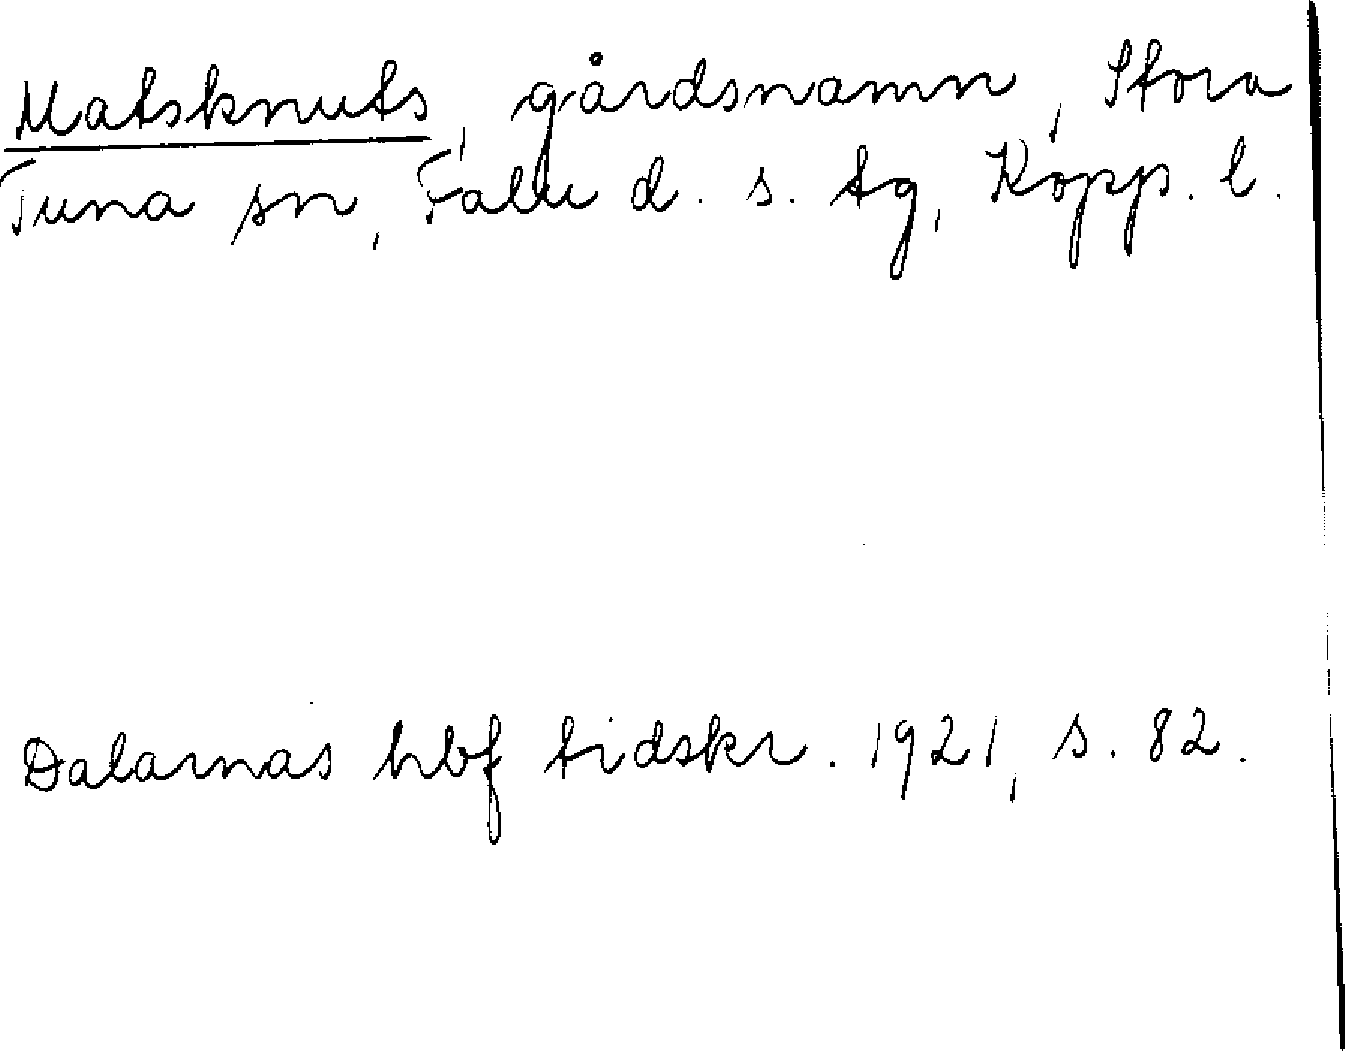 Matsknuts, gårdsnamn, Stora
Tuna sn, Falu d. s. tg, Kopp. l.
Dalarnas hbf tidskr. 1921, s. 82.